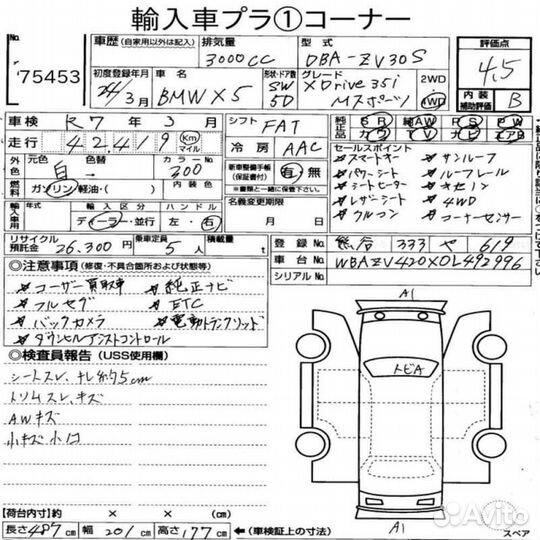 輸入車プラ①コーナー
No.
75453
車歴 (自家用以外は記入)
排気量
3000cc
型式
DBA-ZV30S
評価点
4.5
内装
補助評価
B
初度登録年月
24/3月
車名
BMW X5
形状・ドア数
SW
5D
グレード
XDrive35i
Mスポーツ
2WD
4WD
車検 R7年3月
走行 42,419 Km マイル
シフト FAT
冷房 AAC
純正品 SR AW PS PW
カワ TV ナビ エアB
外色
元色 白
色替
カラーNo.
300
燃料 ガソリン・軽油・( )
内装色
新車整備手帳
(保証書付)
有・無
名義変更期限
月 日
セールスポイント
スマートキー サンルーフ
パワーシート ルーフレール
シートヒーター キセノン
レザーシート 4WD
クルコン コーナーセンサー
輸入車用
年式
輸入区分
ハンドル
ディーラー・並行
左・右
リサイクル
預託金
26,300円
乗車定員
5人
積載量
t
登録No. 熊谷 333 や 619
車台No. WBAZV420X0L492996
シリアルNo.
◎注意事項 (修復・不具合箇所および状態等)
ユーザー買取車 純正ナビ
フルセグ ETC
バックカメラ 電動トランクリッド
ダウンヒルアシストコントロール
◎検査員報告 (USS使用欄)
シートスレ、ナレ
トリムスレ、キズ
AWキズ
小キズ小凹
A1
トビA
A1
スペア
【荷台内寸】約 × × (cm)
長さ 487 幅 201 cm 高さ 177 cm (車検証上の寸法)
Avito